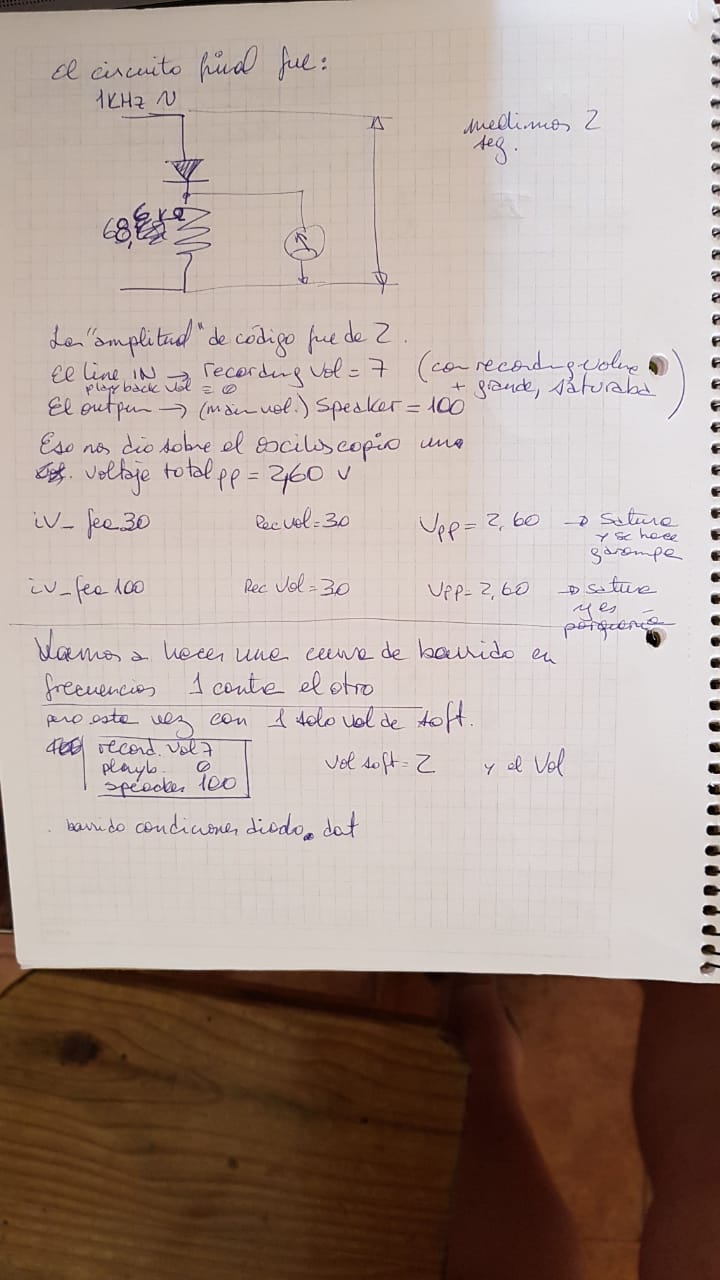 El circuito final fue:
1KHz
medimos 2
seg.
68,
La "amplitud" de código fue de 2.
El line IN → recording vol = 7 (con recording volume
playback vol = 0
+ grande, saturaba)
El output → (main vol.) Speaker = 100
Eso nos dio sobre el osciloscopio una
voltaje total pp = 2,60 V
iv_fea30 Rec vol = 30 Vpp = 2,60 → satura
y se hace
garompa
iv_fea100 Rec Vol = 30 Vpp = 2,60 → satura
y es
porquería
Vamos a hacer una curva de barrido en
frecuencias 1 contra el otro
pero esta vez con 1 solo vol de soft.
record. vol 7
playb. 0
speaker 100
Vol soft = 2 y el Vol
barrido condiciones diodo.dat